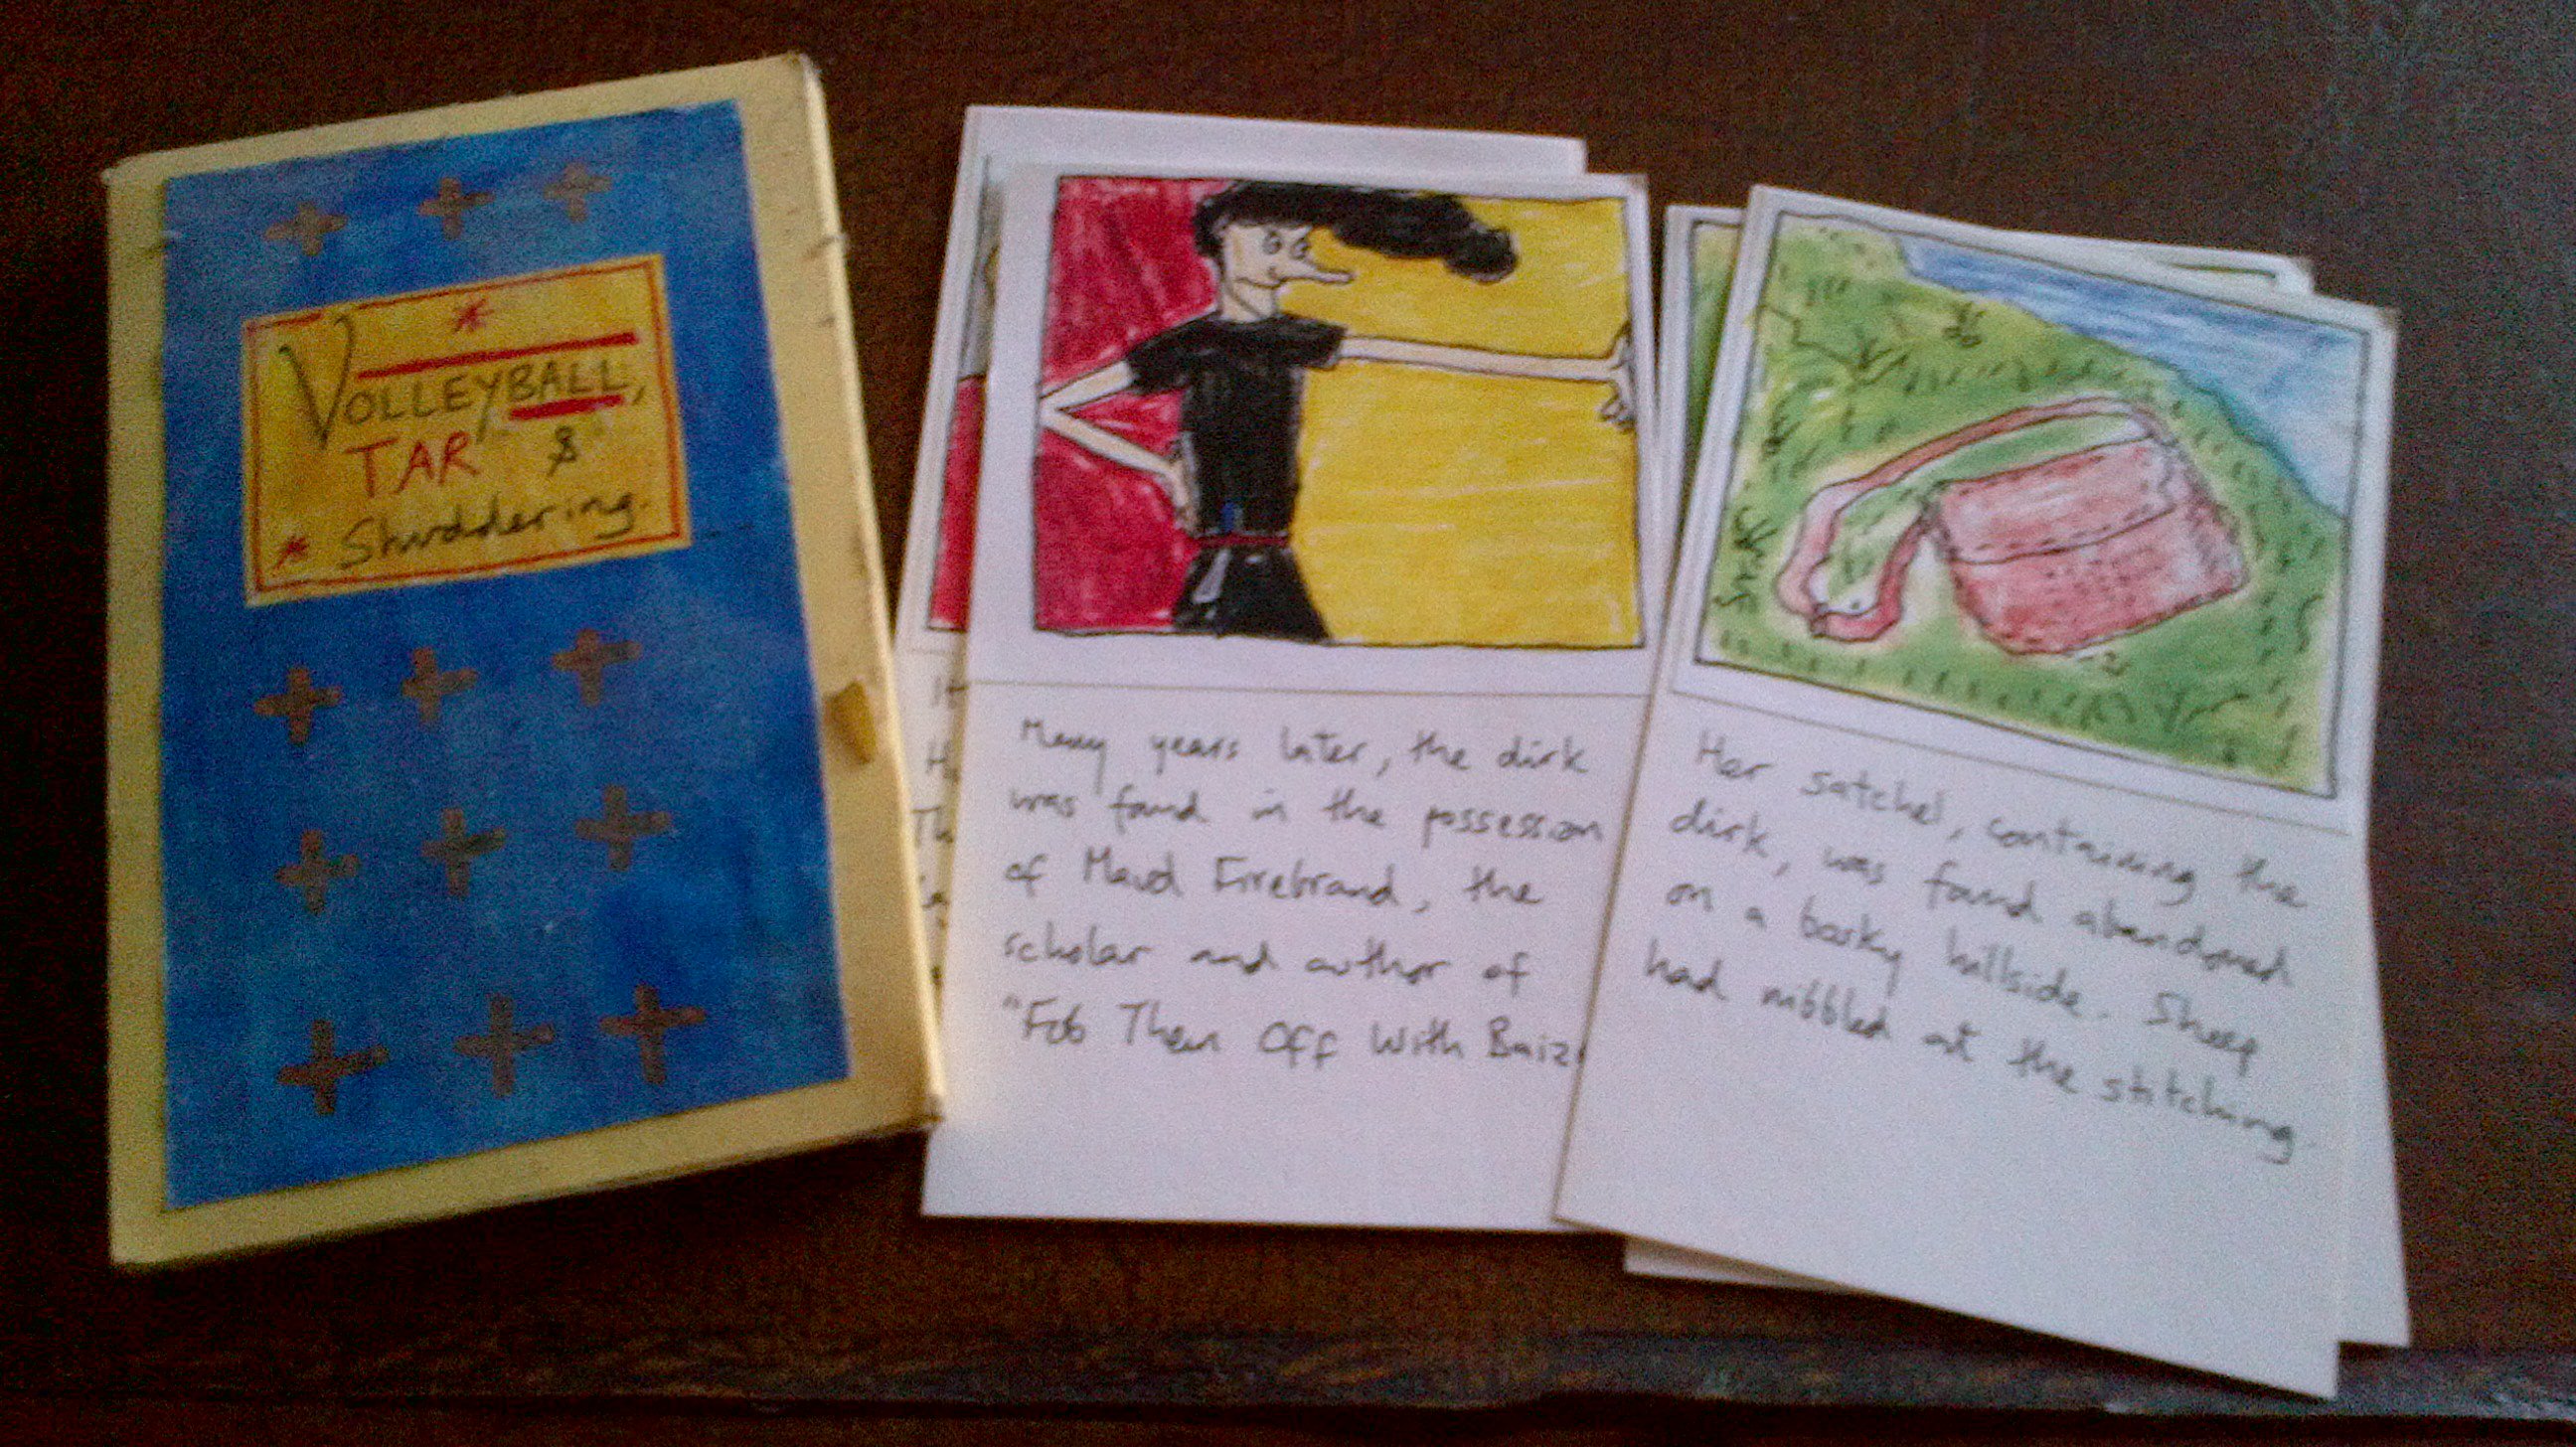 VOLLEYBALL,
TAR &
Shuddering.
Many years later, the dirk
was found in the possession
of Maud Firebrand, the
scholar and author of
"Fob Them Off With Baiz
Her satchel, containing the
dirk, was found abandoned
on a bosky hillside. Sheep
had nibbled at the stitching.